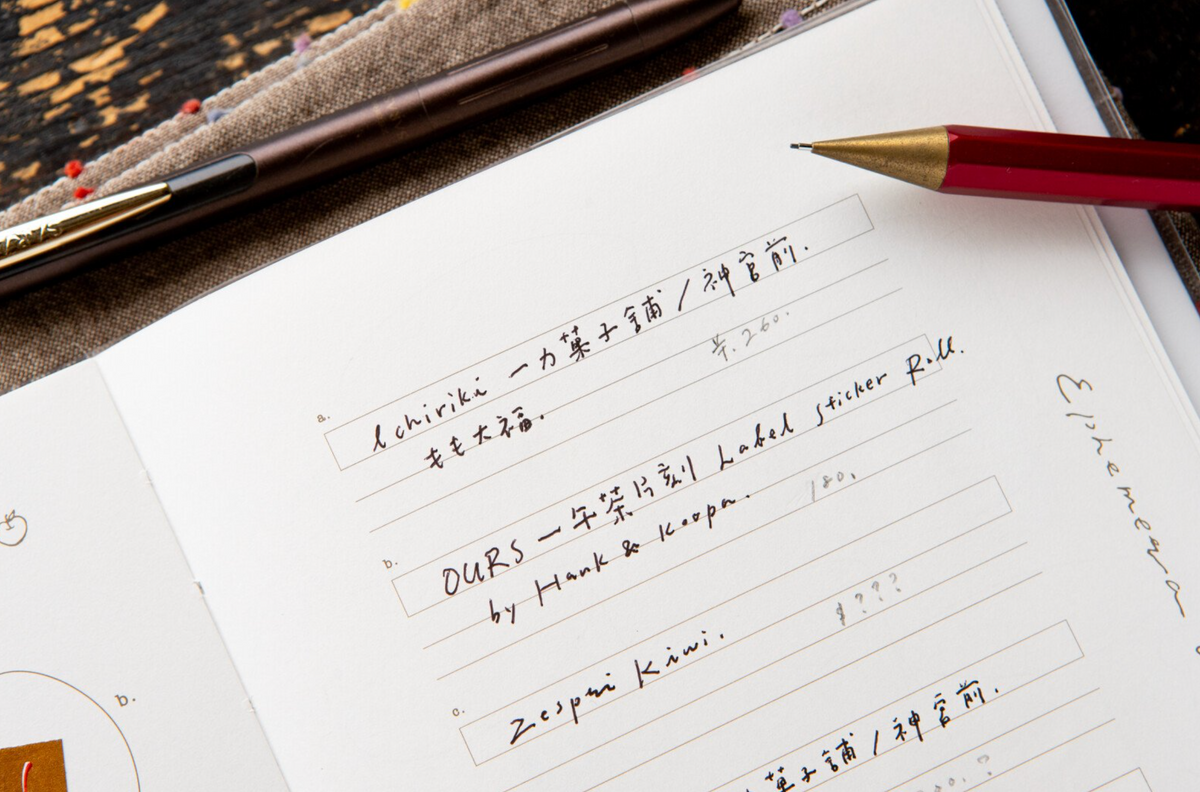 a.
Ichiriki 一力菓子舗/神宮前.
もも大福.
¥.260.
b.
OURS 一年菜片刻 Label Sticker Roll.
by Hank & Koopa.
180.
c.
Zespri Kiwi.
$???
菓子舗/神宮前.
Ephemera
b.